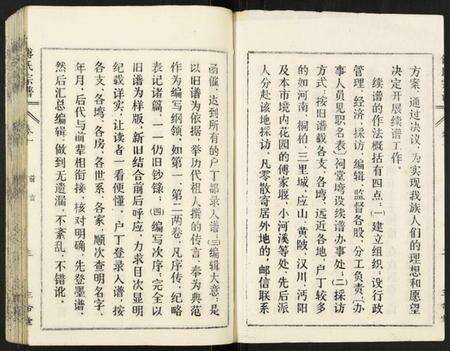 方案,通过决议,为实现我族人们的理想和愿望
决定开展续谱工作。
续谱的作法概括有四点:㈠建立组织,设行政
管理、经济、採访、编辑、监督各股,分工负责(办
事人员见职名表)祠堂塆设续谱办事处;㈡採访
方式:按旧谱载各支、各塆,远近各地,户丁较多
的如河南、桐柏、三里城、应山、黄陂、汉川、沔阳
及本市境内花园的傅家塅、小河溪等处,先后派
人分处该地採访。凡零散寄居外地的,邮信联系
函催,达到所有的户丁都录入谱;㈢编辑大意:是
以旧谱为依据,举历代祖人撰的传言,奉为典范
作为编写纲领,如第一第二两卷,凡序传、纪略
表记诸篇,一一仍旧钞录;㈣编写次序:完全以
旧谱为样版,新旧结合前后呼应,力求目次显明
纪载详实,让读者一看便懂。户丁登录入谱,按
各支、各塆、各房、各世系、各家,顺次查明名字、
年月,后代与前辈相衔接,核对明确,先登墨谱,
然后汇总编辑,做到无遗漏、不紊乱、不错讹。
氏宗谱
卷一